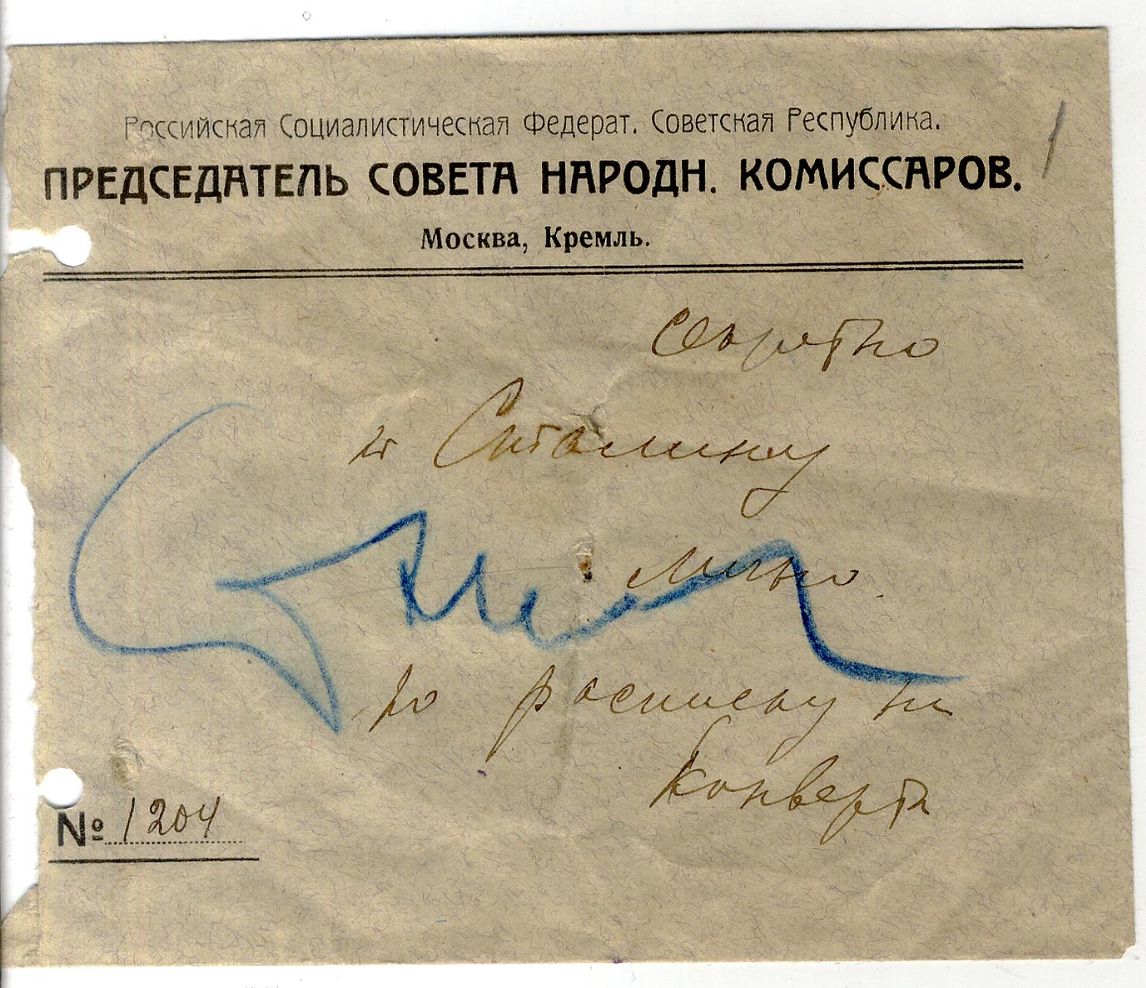 Российская Социалистическая Федерат. Советская Республика.
ПРЕДСЕДАТЕЛЬ СОВЕТА НАРОДН. КОМИССАРОВ.
Москва, Кремль.
1
Секретно
т Сталину
лично
расписку на
Конверте
№ 1204